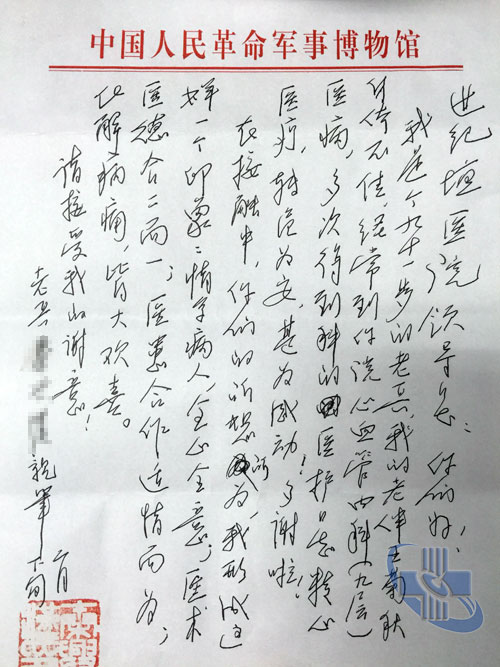 中国人民革命军事博物馆
世纪坛医院领导：你们好！
我是个九十一岁的老兵，我的老伴王菊秋
身体不佳，经常到你院心血管内科（九层）
医病，多次得到科的医护精心
医疗，转危为安，甚为感动！多谢啦！
在接触中，你们的所想所为，我形成这
样一个印象：情系病人，全心全意；医术
医德合二而一；医患合作适情而为；
化解病痛，皆大欢喜。
请接受我的谢意！
老兵 亲笔
六月
下旬